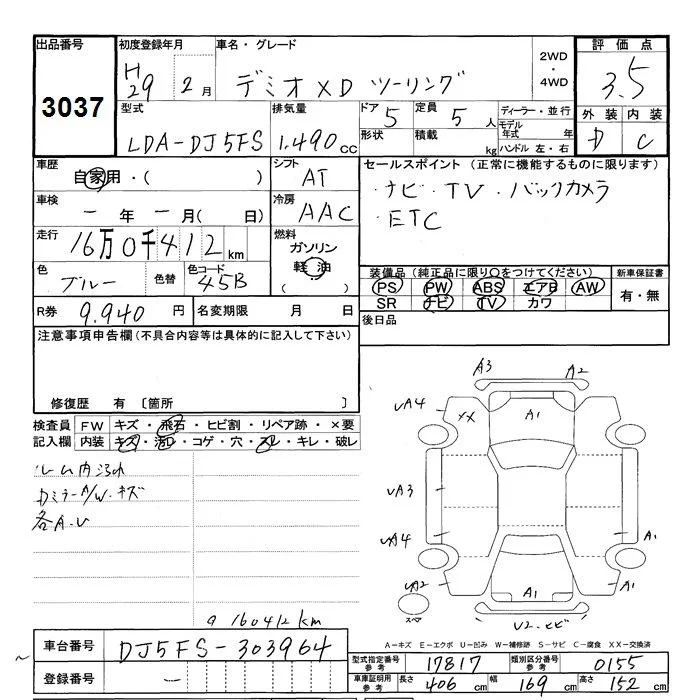 出品番号 初度登録年月 車名・グレード 2WD・4WD 評価点
3037 H29 2月 デミオ XD ツーリング 3.5
型式 排気量 ドア 5 定員 5人 ディーラー・並行 外装 内装
LDA-DJ5FS 1.490cc 形状 積載 kg モデル年式 年 D C
ハンドル 左・右
車歴 シフト セールスポイント(正常に機能するものに限ります)
自家用・( ) AT ・ナビ・TV・バックカメラ
車検 冷房 ・ETC
ー年ー月(日) AAC
走行 燃料
16万0千412km ガソリン
色 色替 色コード 軽油
ブルー 45B ( )
装備品(純正品に限り○をつけてください) 新車保証書
PS PW ABS エアB AW 有・無
SR ナビ TV カワ
R券 9.940円 名変期限 月 日 後日品
注意事項申告欄(不具合内容等は具体的に記入して下さい)
修復歴 有 〔箇所
検査員記入欄 FW キズ・飛石・ヒビ割・リペア跡・×要
内装 キズ・汚レ・コゲ・穴・スレ・キレ・破レ
ルーム内汚れ
DミラーA/W.キズ
各A.U
160412km
A3 A2
UA4 XX A1
UA3
UA4 A1
UA2 A1
スペア U2.ヒビ
A-キズ E-エクボ U-凹み W-補修跡 S-サビ C-腐食 XX-交換済
車台番号 DJ5FS-303964
型式指定番号参考 17817 類別区分番号参考 0155
登録番号 ー
車庫証明用参考 長さ 406cm 幅 169cm 高さ 152cm